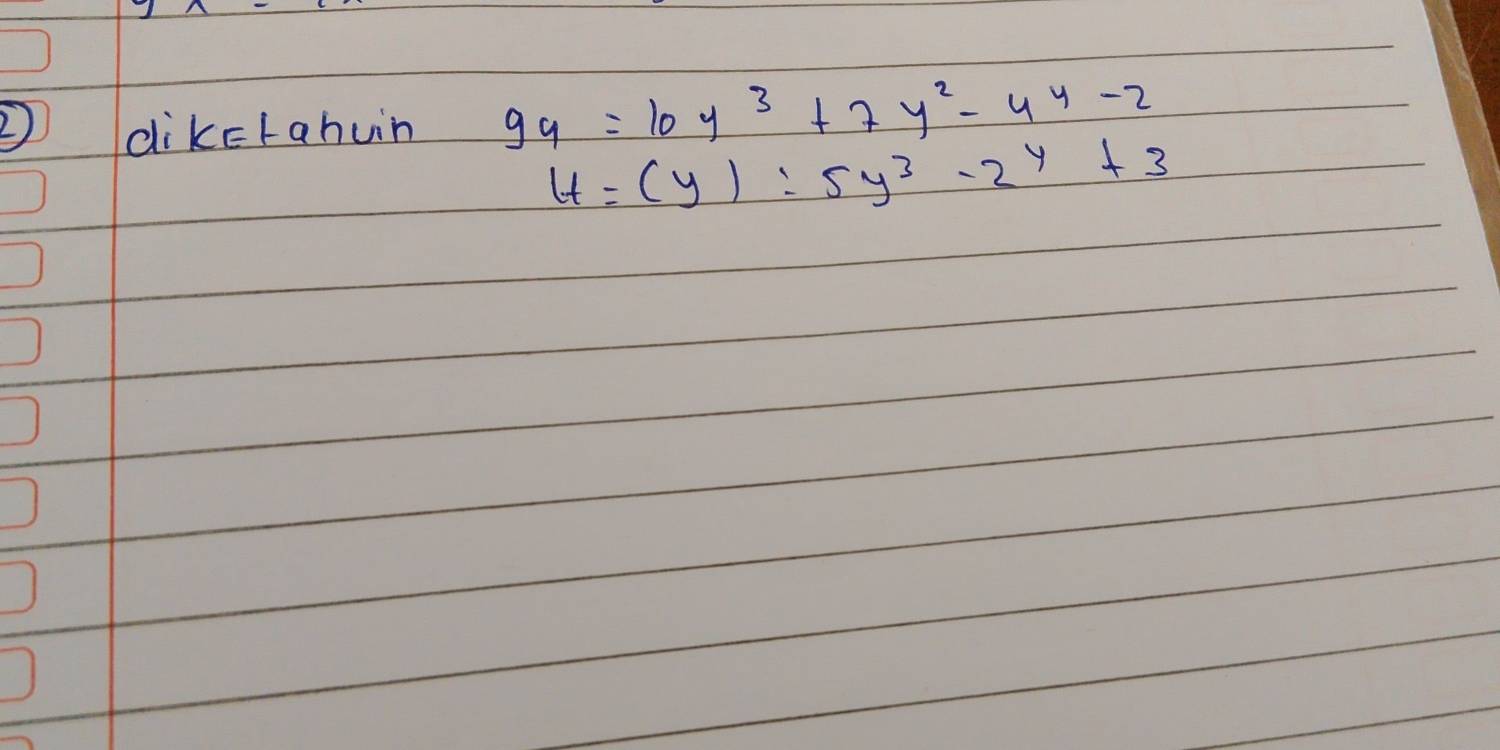 2) diketahuin gy = 10y³ + 7y² - 4y - 2
H = (y) = 5y³ - 2y + 3